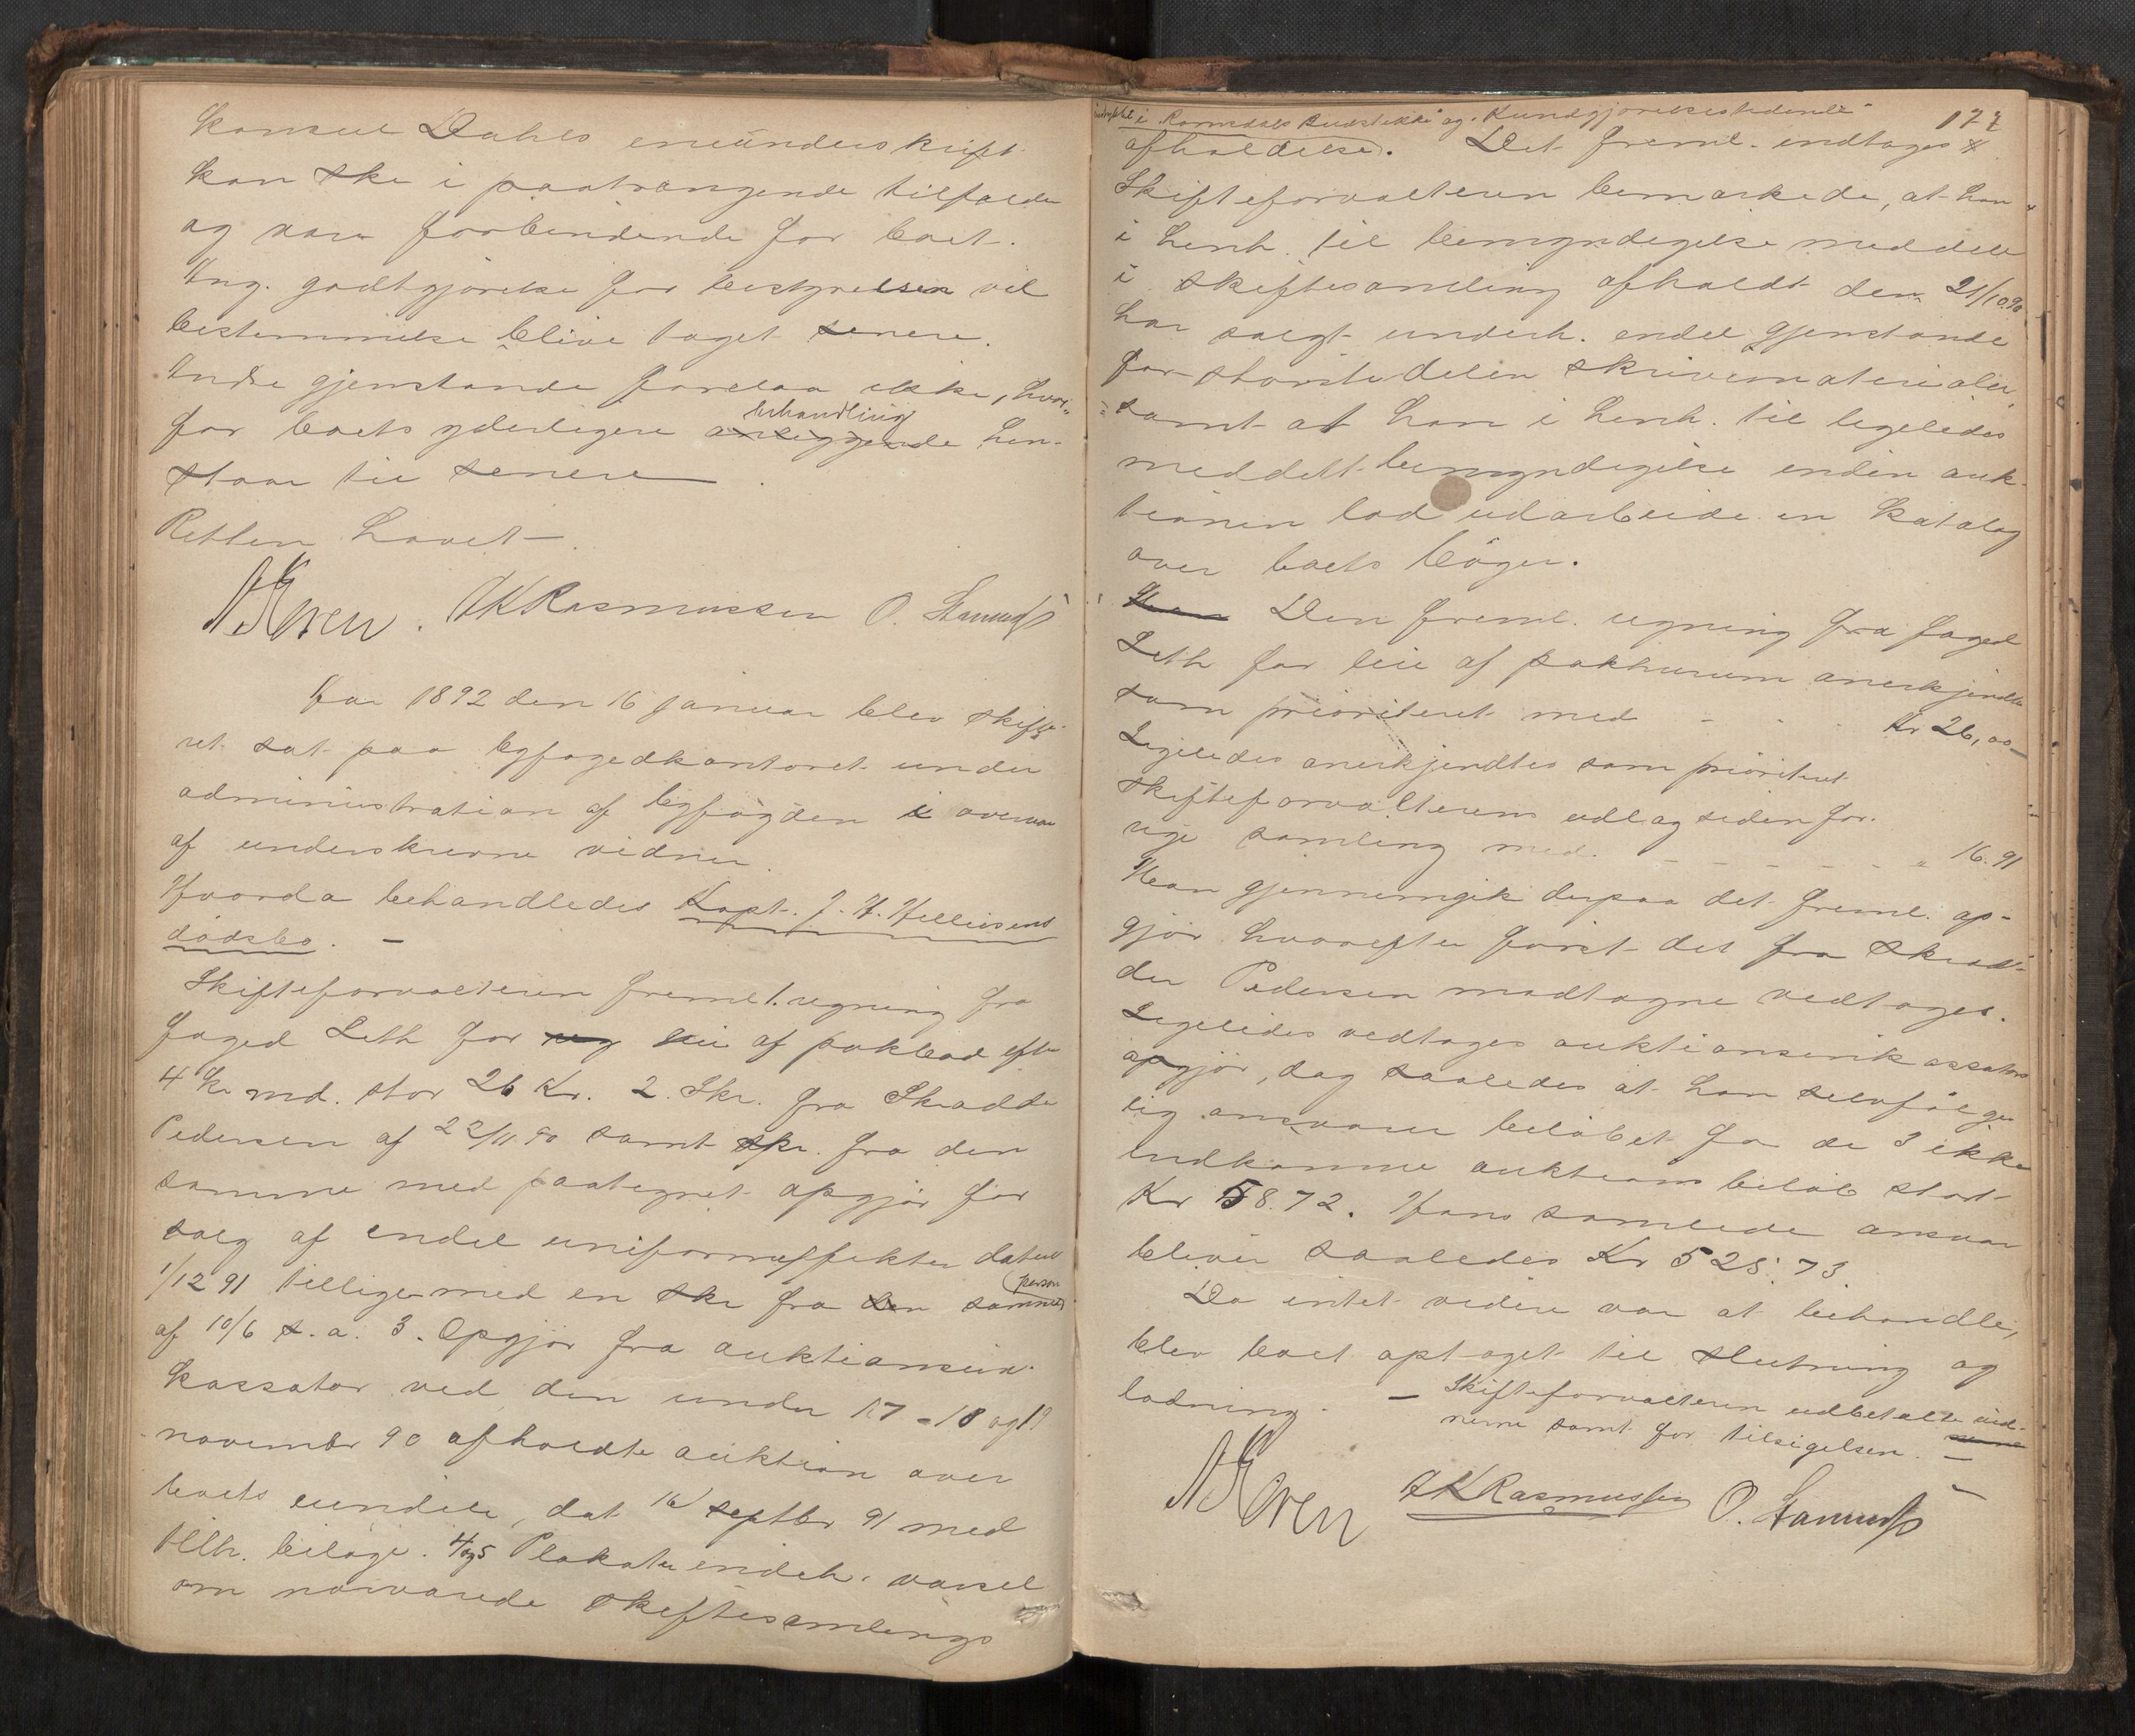 konsul Dahls eneunderskrift
kan ske i paatrængende tilfælde
og være forbindende for boet.
Ang. godtgjörelse for bestyrelsen vil
bestemmelse blive taget senere.
Andre gjenstande forelaa ikke, hvor-
for boets yderligere behandling hen-
staar til senere.
Retten hævet.
J K Rasmussen O. Stamnes
Aar 1892 den 16 januar blev skifte-
ret sat paa byfogedkontoret under
administration af byfogden i overvær
af underskrevne vidner.
Hvorda behandledes Kapt. J. H. Helliesens
dödsbo. —
Skifteforvalteren freml. 1. regning fra
foged Leth for leie af pakbod efter
4 Kr md. stor 26 Kr. 2. Skr. fra Skrædder
Pedersen af 22/11 90 samt skr. fra den
samme med paategnet opgjör for
salg af endel uniformseffekter dateret
1/12 91 tilligemed en skr fra samme person
af 10/6 s.a. 3. Opgjör fra auktionsin-
kassator ved den under 17 - 18 og 19
novembr 90 afholdte auktion over
boets eiendele, dat 16 septbr 91 med
tilh. bilage. 4 og 5 Plakater indeh. varsel
om nærværende skiftesamlings
177
indrykket i "Romsdals Budstikke" og "Kundgjörelsestidende"
afholdelse. Det freml. indtages
Skifteforvalteren bemærkede, at han
i henh. til bemyndigelse meddelt
i skiftesamling afholdt den 21/10 90
har solgt underh. endel gjenstande
for störstedelen skrivematerialer,
samt at han i henh. til ligeledes
meddelt bemyndigelse inden auk-
tionen lod udarbeide en katalog
over boets böger.
Den freml. regning fra foged
Leth for leie af pakhusrum anerkjendtes
som prioriteret med - - - Kr 26,00
Ligeledes anerkjendtes som prioriteret
skifteforvalterens udlæg siden for-
rige samling med - - - - - - " 16.91
Man gjennemgik derpaa det freml. op-
gjör hvorefter först det fra Skræd-
der Pedersen modtagne vedtoges.
Ligeledes vedtoges auktionsinkassators
opgjör, dog saaledes at han selvfölge-
lig ansvarer belöbet for de 3 ikke
indkomne auktions belöb stort
Kr 58.72. Hans samlede ansvar
bliver saaledes Kr 525.73.
Da intet videre var at behandle,
blev boet optaget til slutning og
lodning. — Skifteforvalteren udbetalte vid-
nerne samt for tilsigelsen. —
J K Rasmussen O. Stamnes